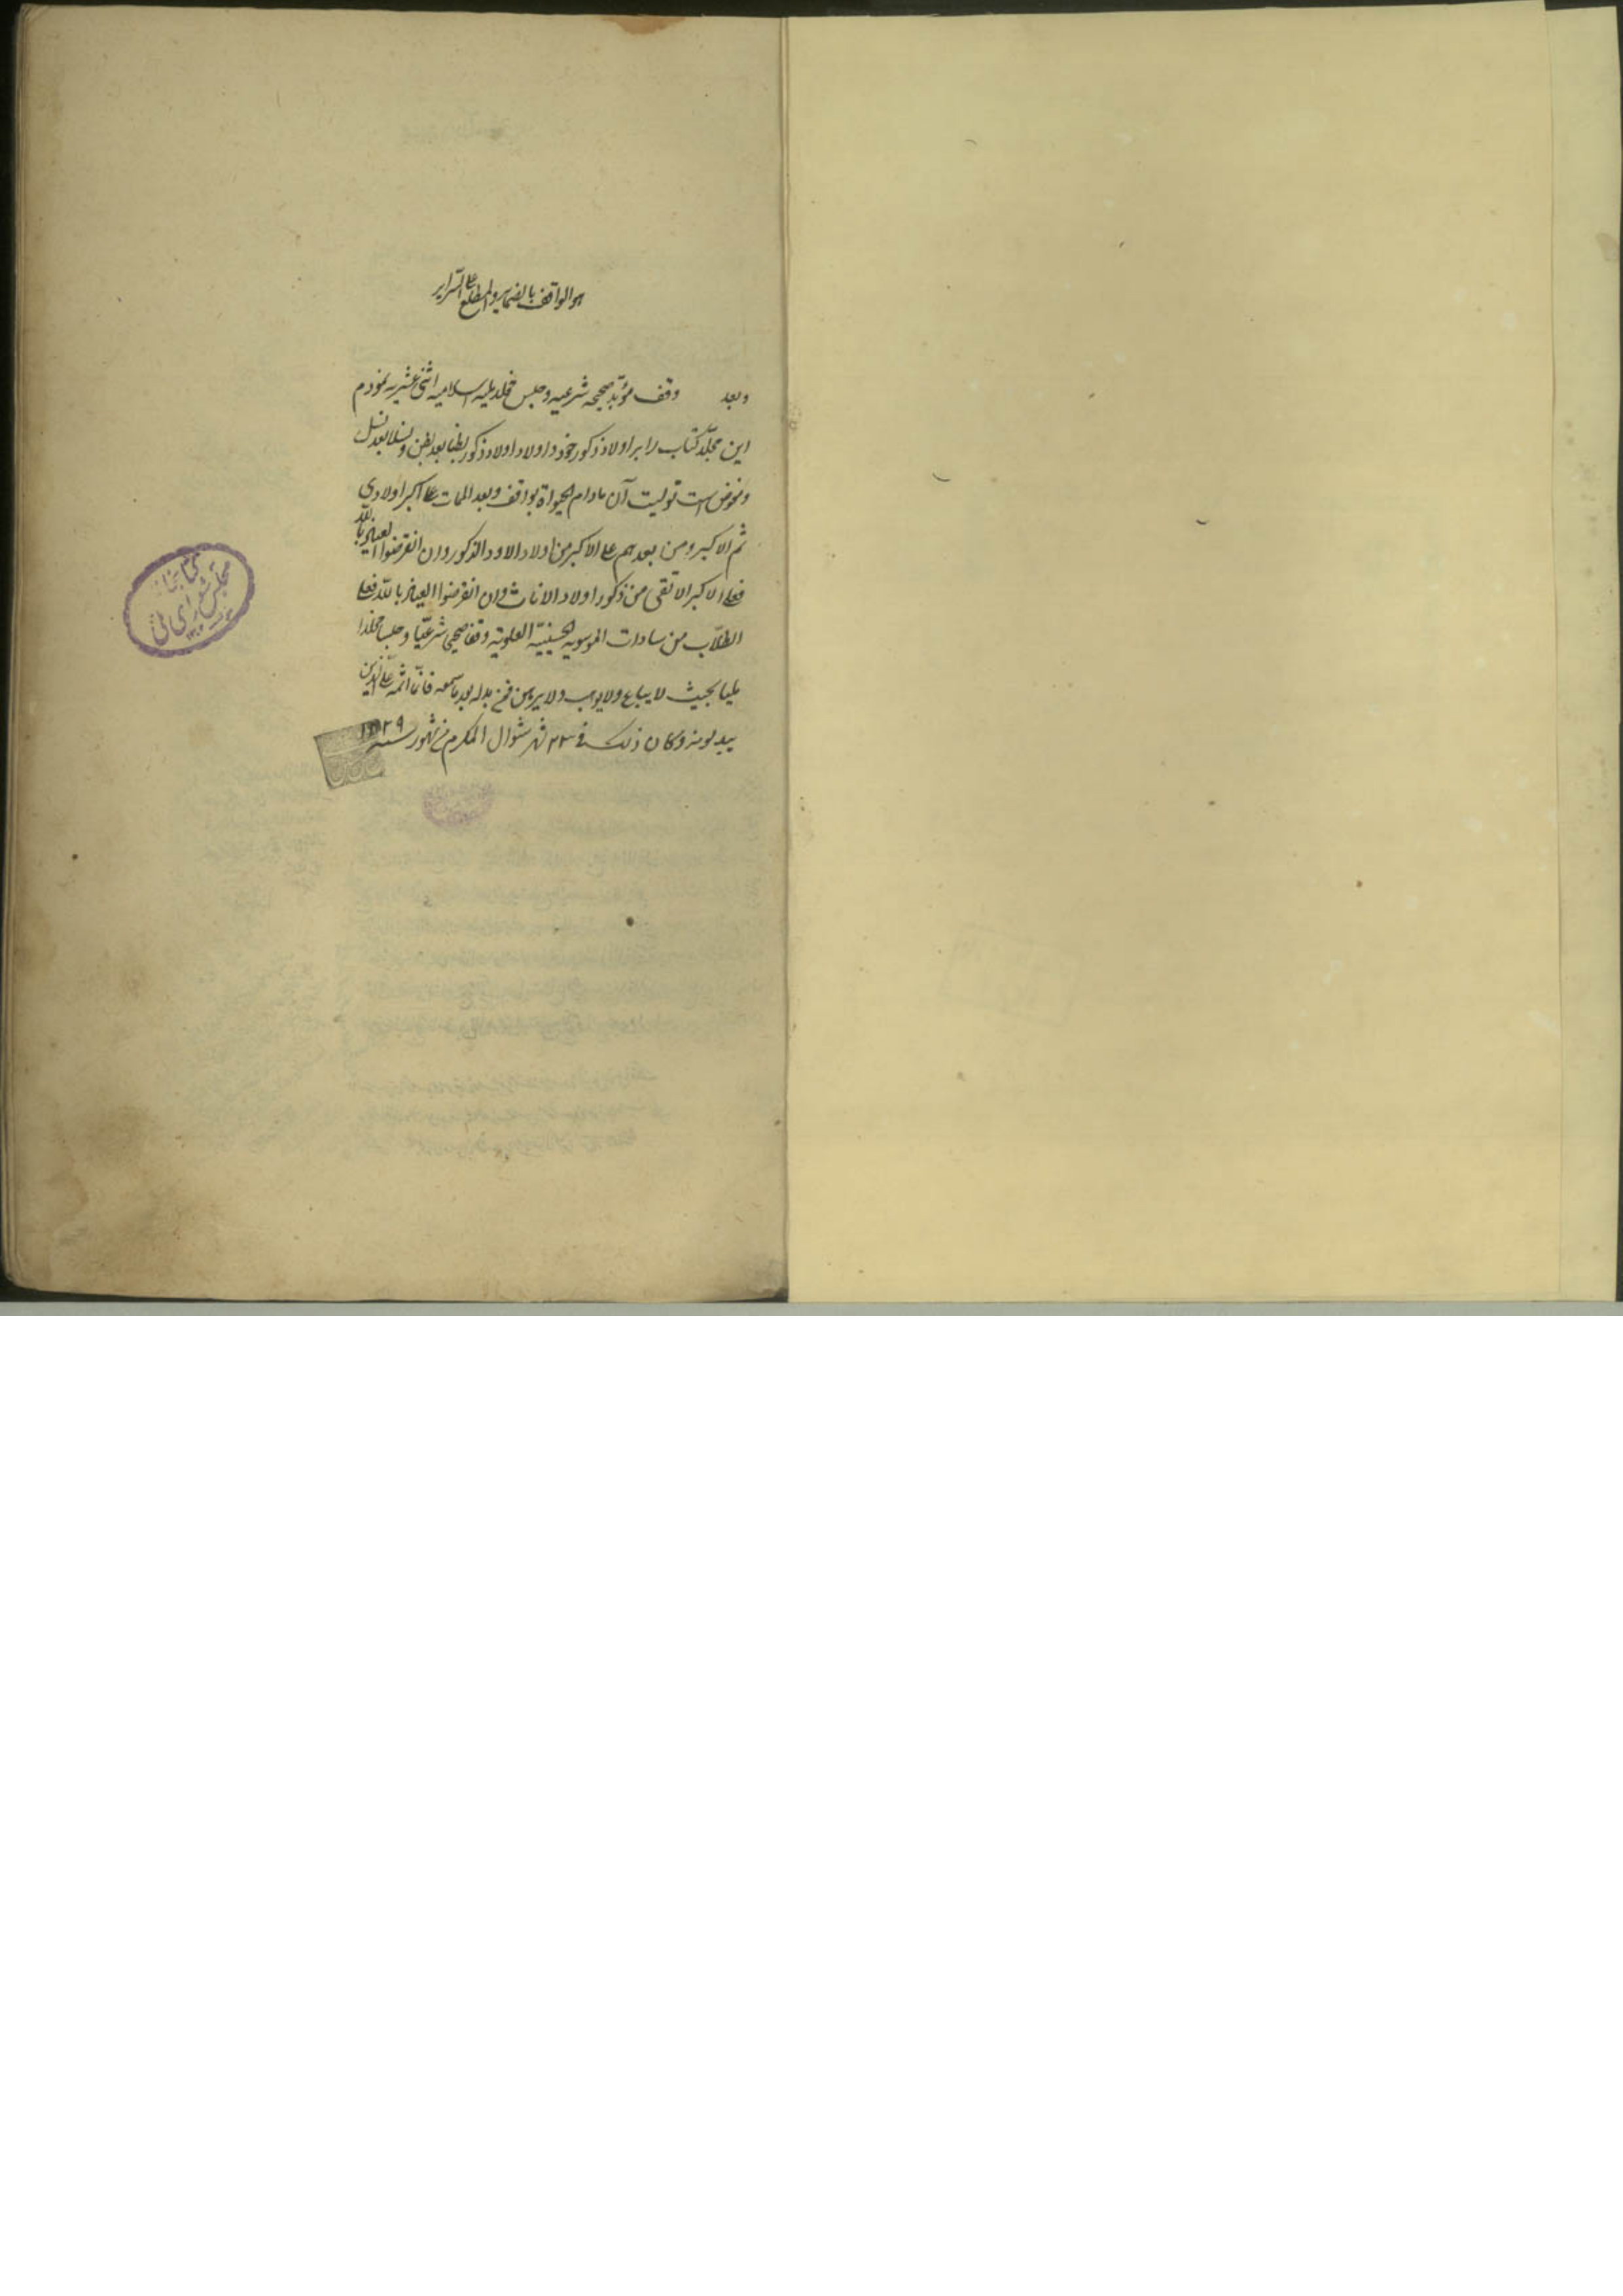 هو الواقف بالضمایر والمطلع علی السرایر
وبعد وقف مؤبد صحیحه شرعیه و حبس مخلد ملیه اسلامیه اثنی عشریه نمودم
این مجلد کتاب را بر اولاد ذکور خود و اولاد اولاد ذکور بطنا بعد بطن و نسلا بعد نسل
و مفوض است تولیت آن مادام الحیوة بواقف و بعد الممات علی اکبر اولادی
ثم الاکبر و من بعدهم علی الاکبر من اولاد الاود الذکور و ان انقرضوا العیاذ بالله
فعلی الاکبر الاتقی من ذکور اولاد الاناث و ان انقرضوا العیاذ بالله فعلی
الطلاب من سادات الموسویه الحسینیّه العلویّه وقفا صحیحی شرعیّا و حبسا مخلدا
ملیا بحیث لا یباع ولا یوهب ولا یرهن فمن بدله بعد ما سمعه فانّما اثمه علی الذین
یبدلونه و کان ذلک فی ۲۳ شهر شوال المکرم من شهور سنه ۱۳۲۹
کتابخانه
مجلس شورای ملی